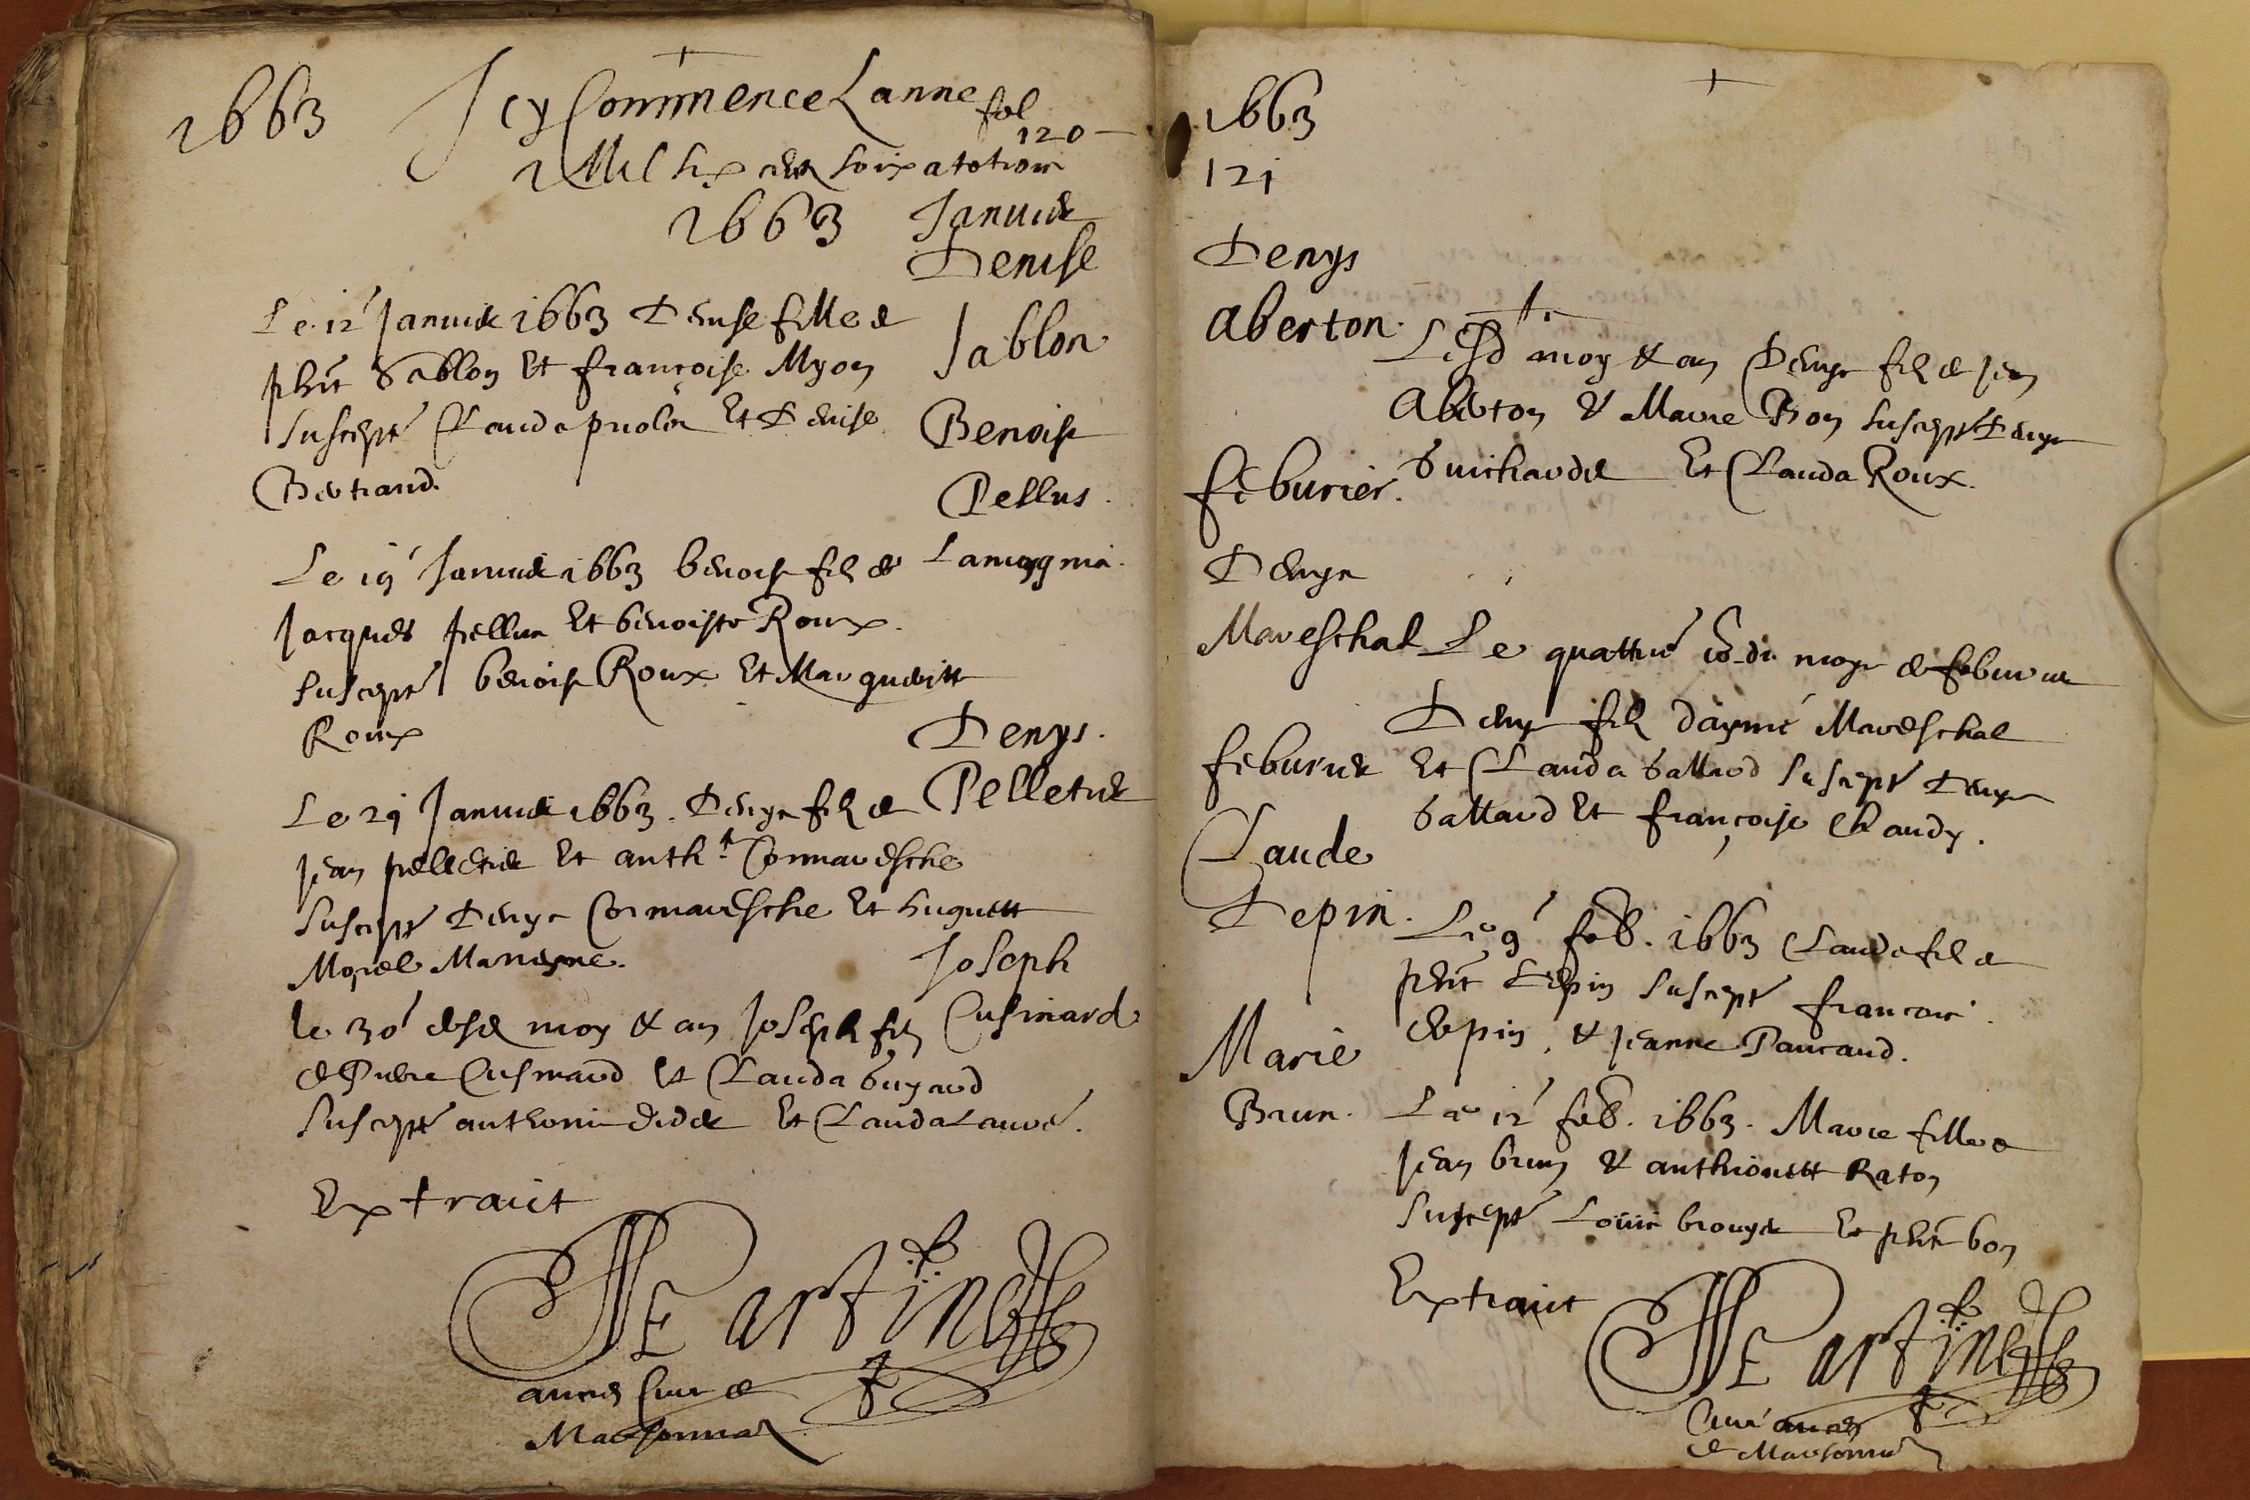 1663
Icy Commence Lanne
fol
120
Mil six cent soixatetrois
1663 Januier
Denise
Sablon
Le 12 Januier 1663 Denise fille de
phit Sablon et françoise Myon
suscept Claude et Denise
Bertrand.
Benoist
Pellus.
Le 19 Januier 1663 benoist fils de
Jacques pellus et benoiste Roux.
suscept benoist Roux et Margueritte
Roux
Denys.
Pelletier
Le 21 Januier 1663. Denys fils de
Jean pelletier et anth. Cormaresche
suscept Denys Cormaresche et huguette
Morel
Joseph
Cusinard
le 30 desd moy & an Joseph fils
de Pierre Cusinard et Clauda buyard
suscept anthoine didier et Clauda
Extraict
Martine
ancien Curé de
1663
121
Denys
Aberton.
Lesd moy & an Denys fils de Jean
Aberton & Marie Bon suscept Denys
Guichardet et Clauda Roux.
feburier.
Denys
Mareschal
Le quattre du moys de feburier
Denys fils daymé Mareschal
et Clauda Gallard suscept Denys
Gallard et françoise Chaudy.
feburier
Claude
Depin.
Le 9 feb. 1663 Claude fils de
phit Depin suscept francois
depin, & Jeanne Paucaud.
Marie
Brun.
Le 12 feb. 1663. Marie fille de
Jean brun & anthionette Raton
suscept Louis brouyer et phit bon
Extraict
Martine
Curé ancien
de